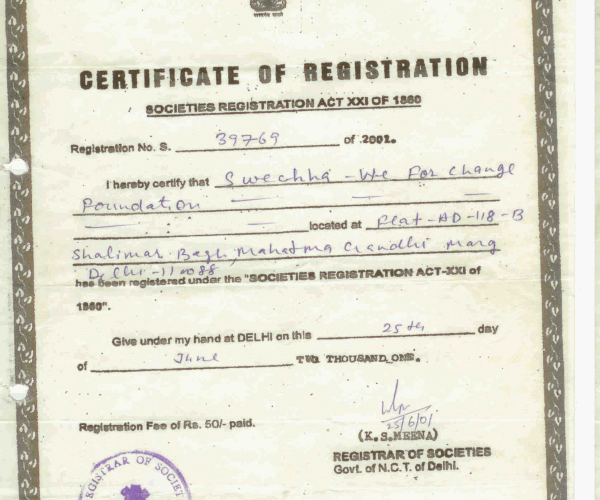 CERTIFICATE OF REGISTRATION
SOCIETIES REGISTRATION ACT XXI OF 1860
Registration No. S. 39769 of 2001.
I hereby certify that Swechha - We For Change
Foundation
located at Flat-AD-118-B
Shalimar Bagh, Mahatma Gandhi Marg
Delhi-110088
has been registered under the "SOCIETIES REGISTRATION ACT-XXI of
1860".
Give under my hand at DELHI on this 25th day
of June TWO THOUSAND ONE.
25/6/01
Registration Fee of Rs. 50/- paid.
(K.S.MEENA)
REGISTRAR OF SOCIETIES
Govt. of N.C.T. of Delhi.
REGISTRAR OF SOCIET